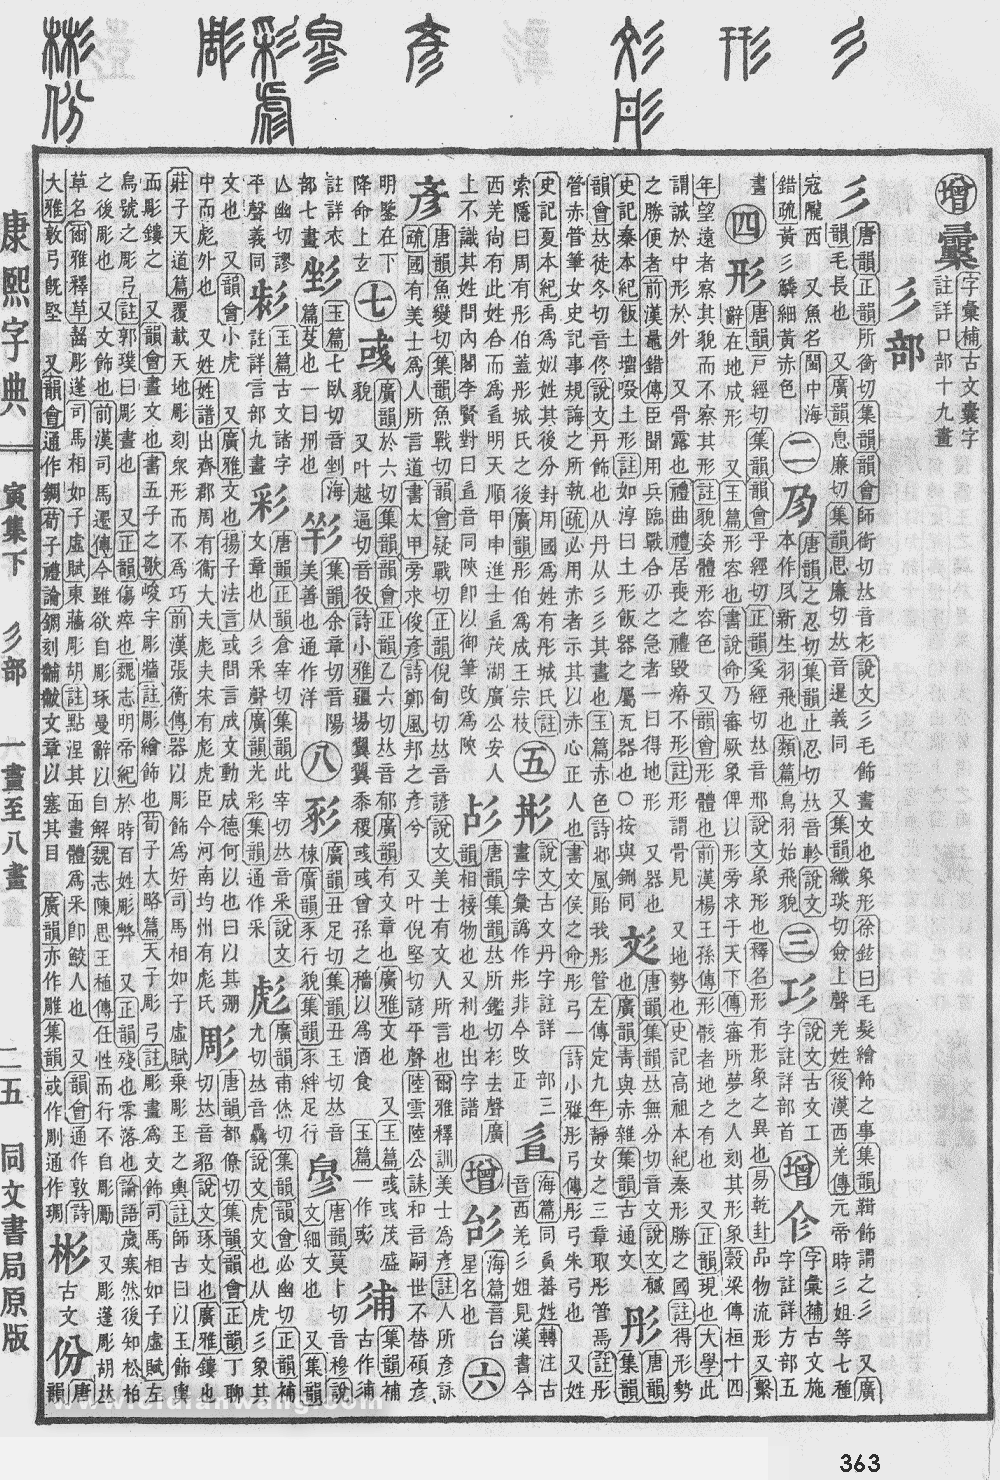 彡 形 彣 彤 彥 㣎 彩 彪 彫 彬 份
增 字彙補古文囊字
註詳口部十九畫
彡部
彡 唐韻正韻所銜切集韻韻會師銜切𠀤音衫說文彡毛飾畫文也象形徐鉉曰毛髮繪飾之事集韻鞙飾謂之彡 又廣
韻毛長也 又廣韻息廉切集韻思廉切𠀤音暹義同 又集韻纖琰切僉上聲羌姓後漢西羌傳元帝時彡姐等七種
寇隴西 又魚名閩中海
錯疏黃彡鱗細黃赤色
二 唐韻之忍切集韻止忍切𠀤音軫說文
本作㐱新生羽飛也類篇鳥羽始飛貌
三 说文古文工
字註詳部首
增 字彙補古文施
字註詳方部五
畫
四 形 唐韻戸經切集韻韻會乎經切正韻奚經切𠀤音邢說文象形也釋名形有形象之異也易乾卦品物流形又繫
辭在地成形 又玉篇形容也書說命乃審厥象俾以形旁求于天下傳審所夢之人刻其形象穀梁傳桓十四
年望遠者察其貌而不察其形註貌姿體形容色 又韻會形體也前漢楊王孫傳形骸者地之有也 又正韻現也大學此
謂誠於中形於外 又骨露也禮曲禮居喪之禮毀瘠不形註形謂骨見 又地勢也史記高祖本紀秦形勝之國註得形勢
之勝便者前漢鼂錯傳臣聞用兵臨戰合刃之急者一曰得地形 又器也
史記秦本紀飯土塯啜土形註如淳曰土形飯器之屬瓦器也○按與鉶同
彣 唐韻集韻𠀤無分切音文說文𢒰
也廣韻靑與赤雜集韻古通文
彤 唐韻
集韻
韻會𠀤徒冬切音佟說文丹飾也从丹从彡彡其畫也玉篇赤色詩邶風貽我彤管左傳定九年靜女之三章取彤管焉註彤
管赤管筆女史記事規誨之所執疏必用赤者示其以赤心正人也書文侯之命彤弓一詩小雅彤弓傳彤弓朱弓也 又姓
史記夏本紀禹爲姒姓其後分封用國爲姓有彤城氏註
索隱曰周有彤伯蓋彤城氏之後廣韻彤伯爲成王宗枝
五 說文古文丹字註詳 部三
畫字彙譌作彨非今攺正
海篇同㒹蕃姓轉注古
音西羌彡姐見漢書今
西羌尙有此姓合而爲㒹明天順甲申進士㒹茂湖廣公安人
上不識其姓問內閣李賢對曰㒹音同陝卽以御筆改爲陝
唐韻集韻𠀤所鑑切衫去聲廣
韻相接物也 又利也出字譜
增 海篇音台
星名也
六
彥 唐韻魚變切集韻魚戰切韻會疑戰切正韻倪甸切𠀤音諺說文美士有文人所言也爾雅釋訓美士爲彥註人所彥詠
疏國有美士爲人所言道書太甲旁求俊彥詩鄭風邦之彥兮 又叶倪堅切諺平聲陸雲陸公誄和音嗣世不替碩彥
明鑒在下
降命上玄
七 彧 廣韻於六切集韻韻會正韻乙六切𠀤音郁廣韻有文章也廣雅文也 又玉篇彧彧茂盛
貌 又叶越逼切音役詩小雅疆埸翼翼黍稷彧彧曾孫之穡以爲酒食 玉篇一作戫
集韻補
古作𢒰
註詳衣
部七畫
玉篇七臥切音剉海
篇芟也一曰刑也
集韻余章切音陽
美善也通作洋
八 廣韻丑足切集韻丑玉切𠀤音
棟廣韻豕行貌集韻豕絆足行
㣎 唐韻莫卜切音穆說
文細文也 又集韻
𠆢幽切謬
平聲義同
玉篇古文諸字
註詳言部九畫
彩 唐韻正韻倉宰切集韻此宰切𠀤音采說文
文章也从彡采聲廣韻光彩集韻通作采
彪 廣韻甫烋切集韻韻會必幽切正韻補
尤切𠀤音驫說文虎文也从虎彡象其
文也 又韻會小虎 又廣雅文也揚子法言或問言成文動成德何以也曰以其弸
中而彪外也 又姓姓譜出齊郡周有衞大夫彪夫宋有彪虎臣今河南均州有彪氏
彫 唐韻都僚切集韻韻會正韻丁聊
切𠀤音貂說文琢文也廣雅鏤也
莊子天道篇覆載天地彫刻衆形而不爲巧前漢張衡傳器以彫飾爲好司馬相如子虛賦乘彫玉之輿註師古曰以玉飾輿
而彫鏤之 又韻會畫文也書五子之歌峻宇彫牆註彫繪飾也荀子大略篇天子彫弓註彫畫爲文飾司馬相如子虛賦左
烏號之彫弓註郭璞曰彫畫也 又正韻傷瘁也魏志明帝紀於時百姓彫弊 又正韻殘也零落也論語歲寒然後知松柏
之後彫也 又文飾也前漢司馬遷傳今雖欲自彫琢曼辭以自解魏志陳思王植傳任性而行不自彫勵 又彫蓬彫胡𠀤
草名爾雅釋草齧彫蓬司馬相如子虛賦東蘠彫胡註點涅其面畫體爲采卽鮫人也 又韻會通作敦詩
大雅敦弓旣堅 又韻會通作鋼荀子禮論鋼刻黼黻文章以塞其目 廣韻亦作雕集韻或作剛通作琱
彬 古文
份 唐
韻
康熙字典 寅集下 彡部 一畫至八畫 二五 同文書局原版
363